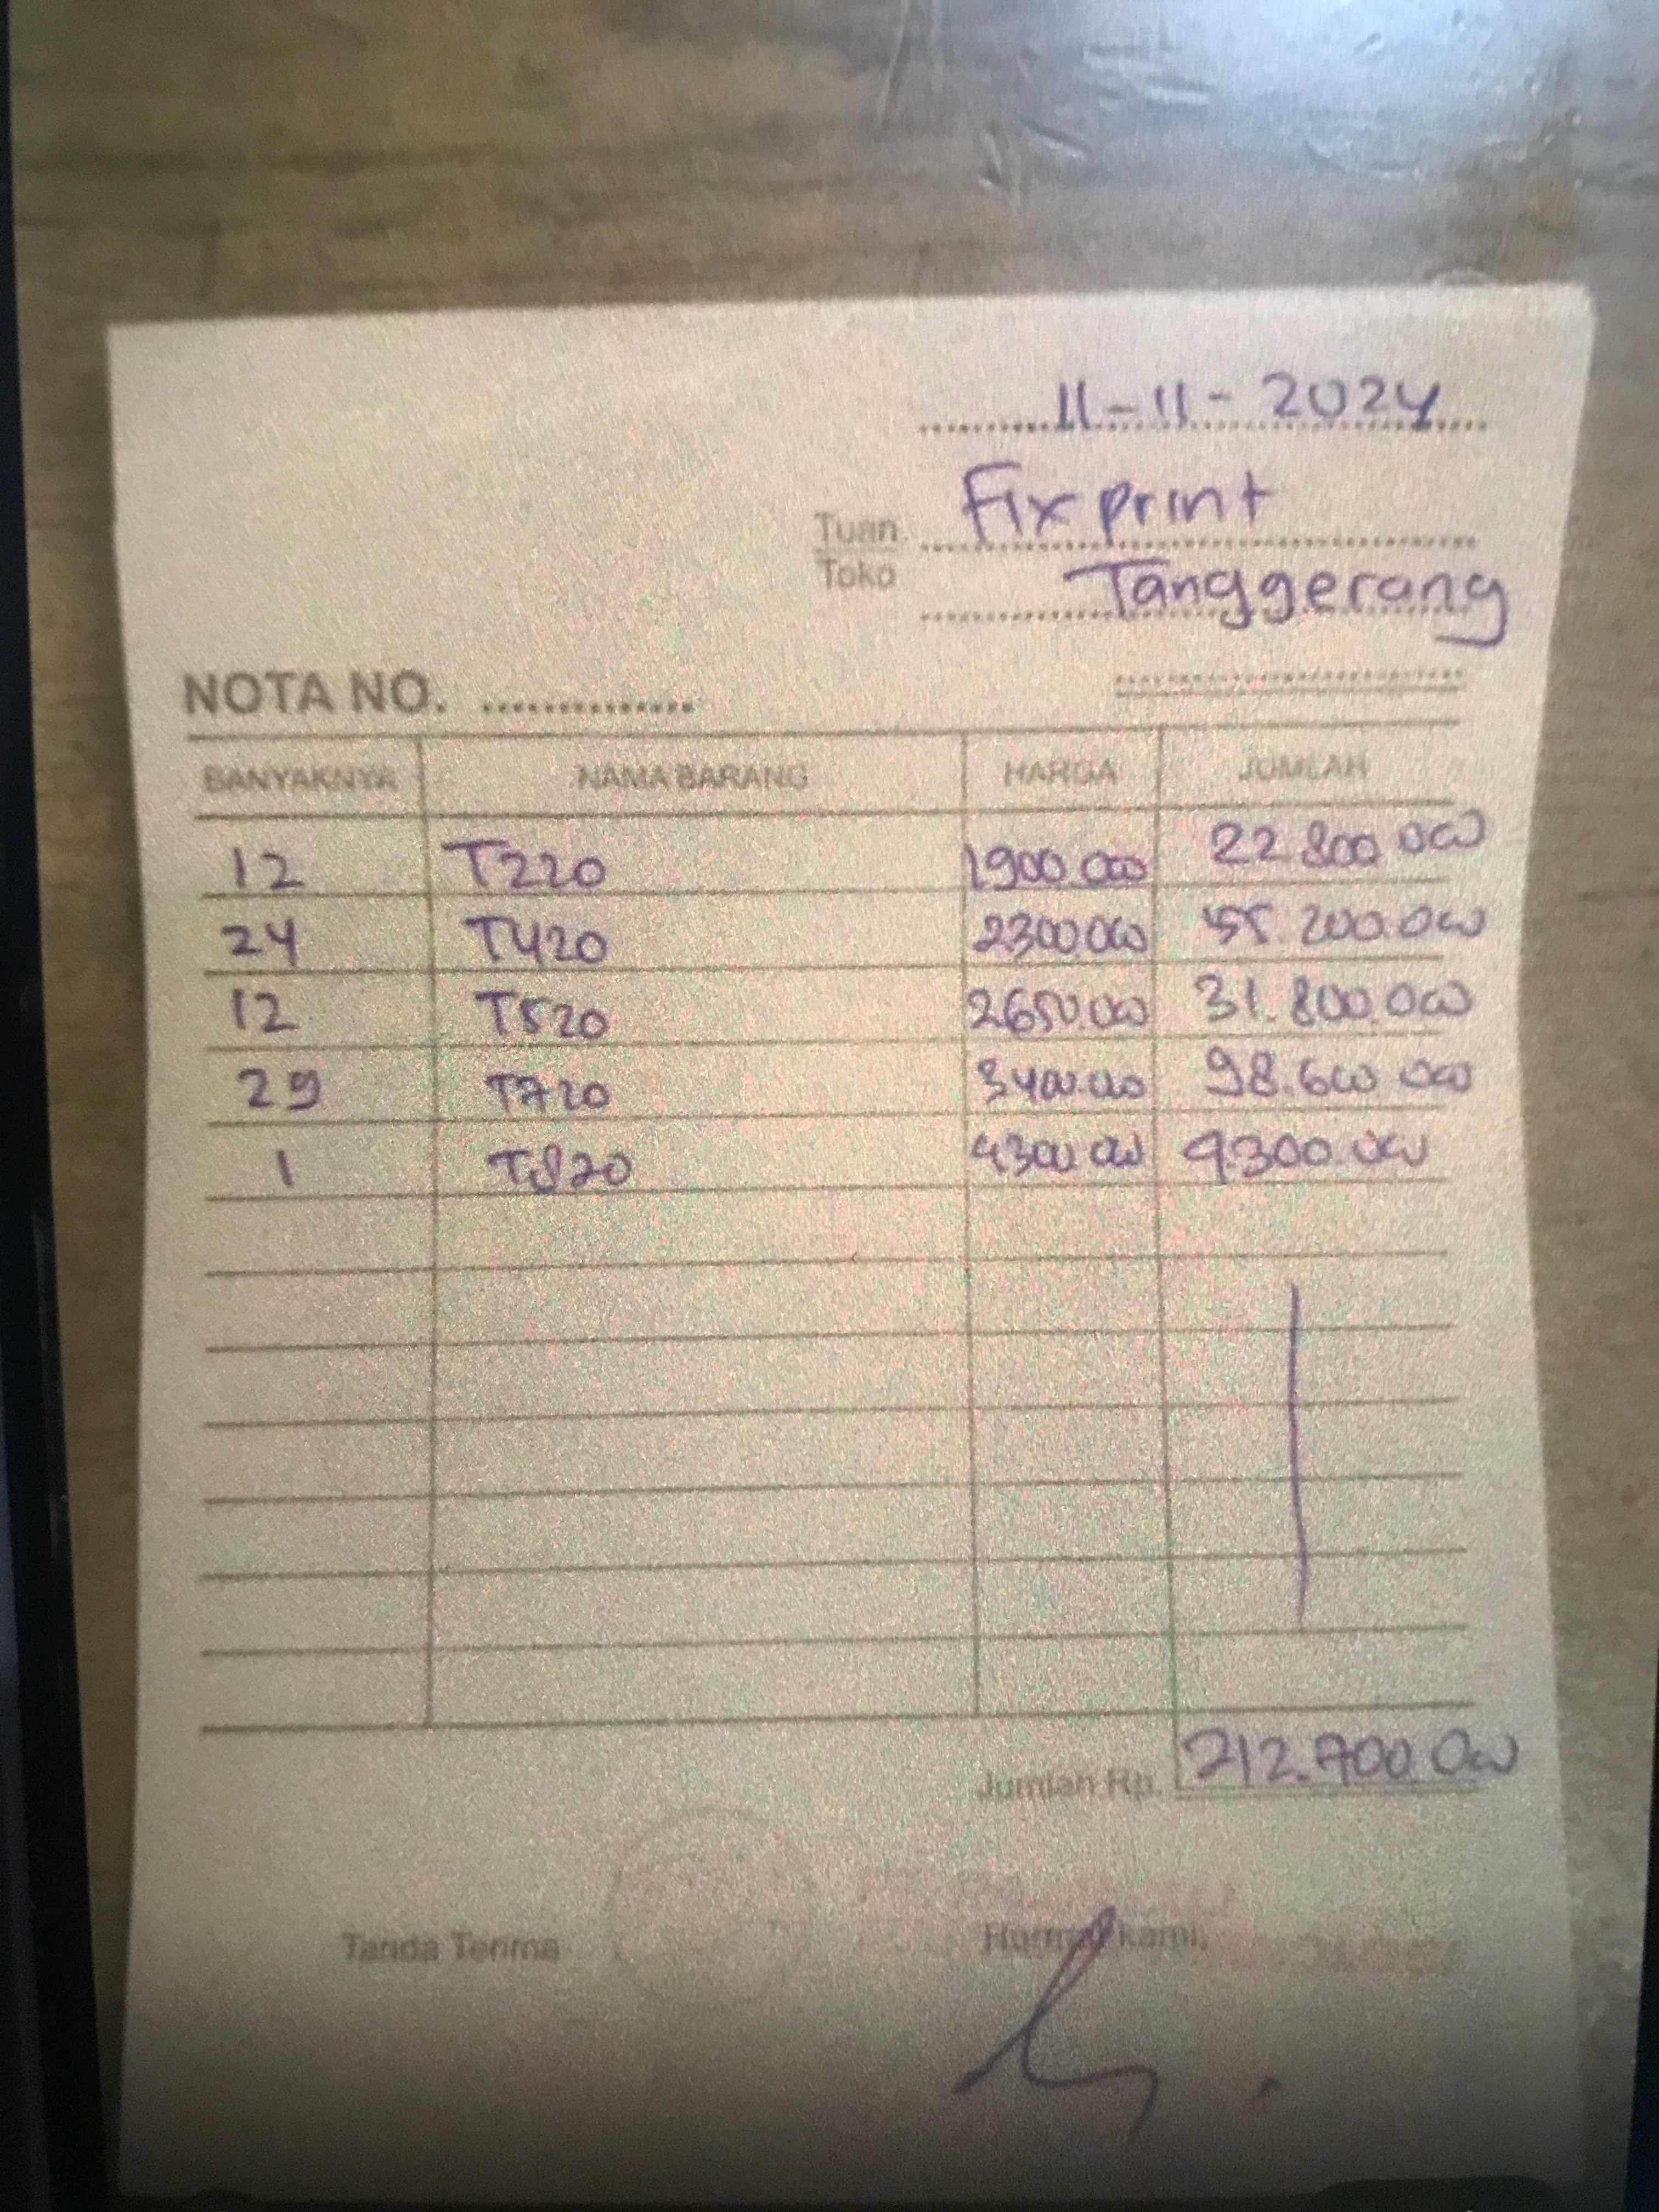 11-11-2024
Tuan Fixprint
Toko Tanggerang
NOTA NO. ..............
BANYAKNYA NAMA BARANG HARGA JUMLAH
12 T220 1900.000 22.800.000
24 T420 2300.000 55.200.000
12 T520 2650.000 31.800.000
29 T720 3400.000 98.600.000
1 T820 4300.000 4.300.000
Jumlah Rp. 212.700.000
Tanda Terima Hormat kami,